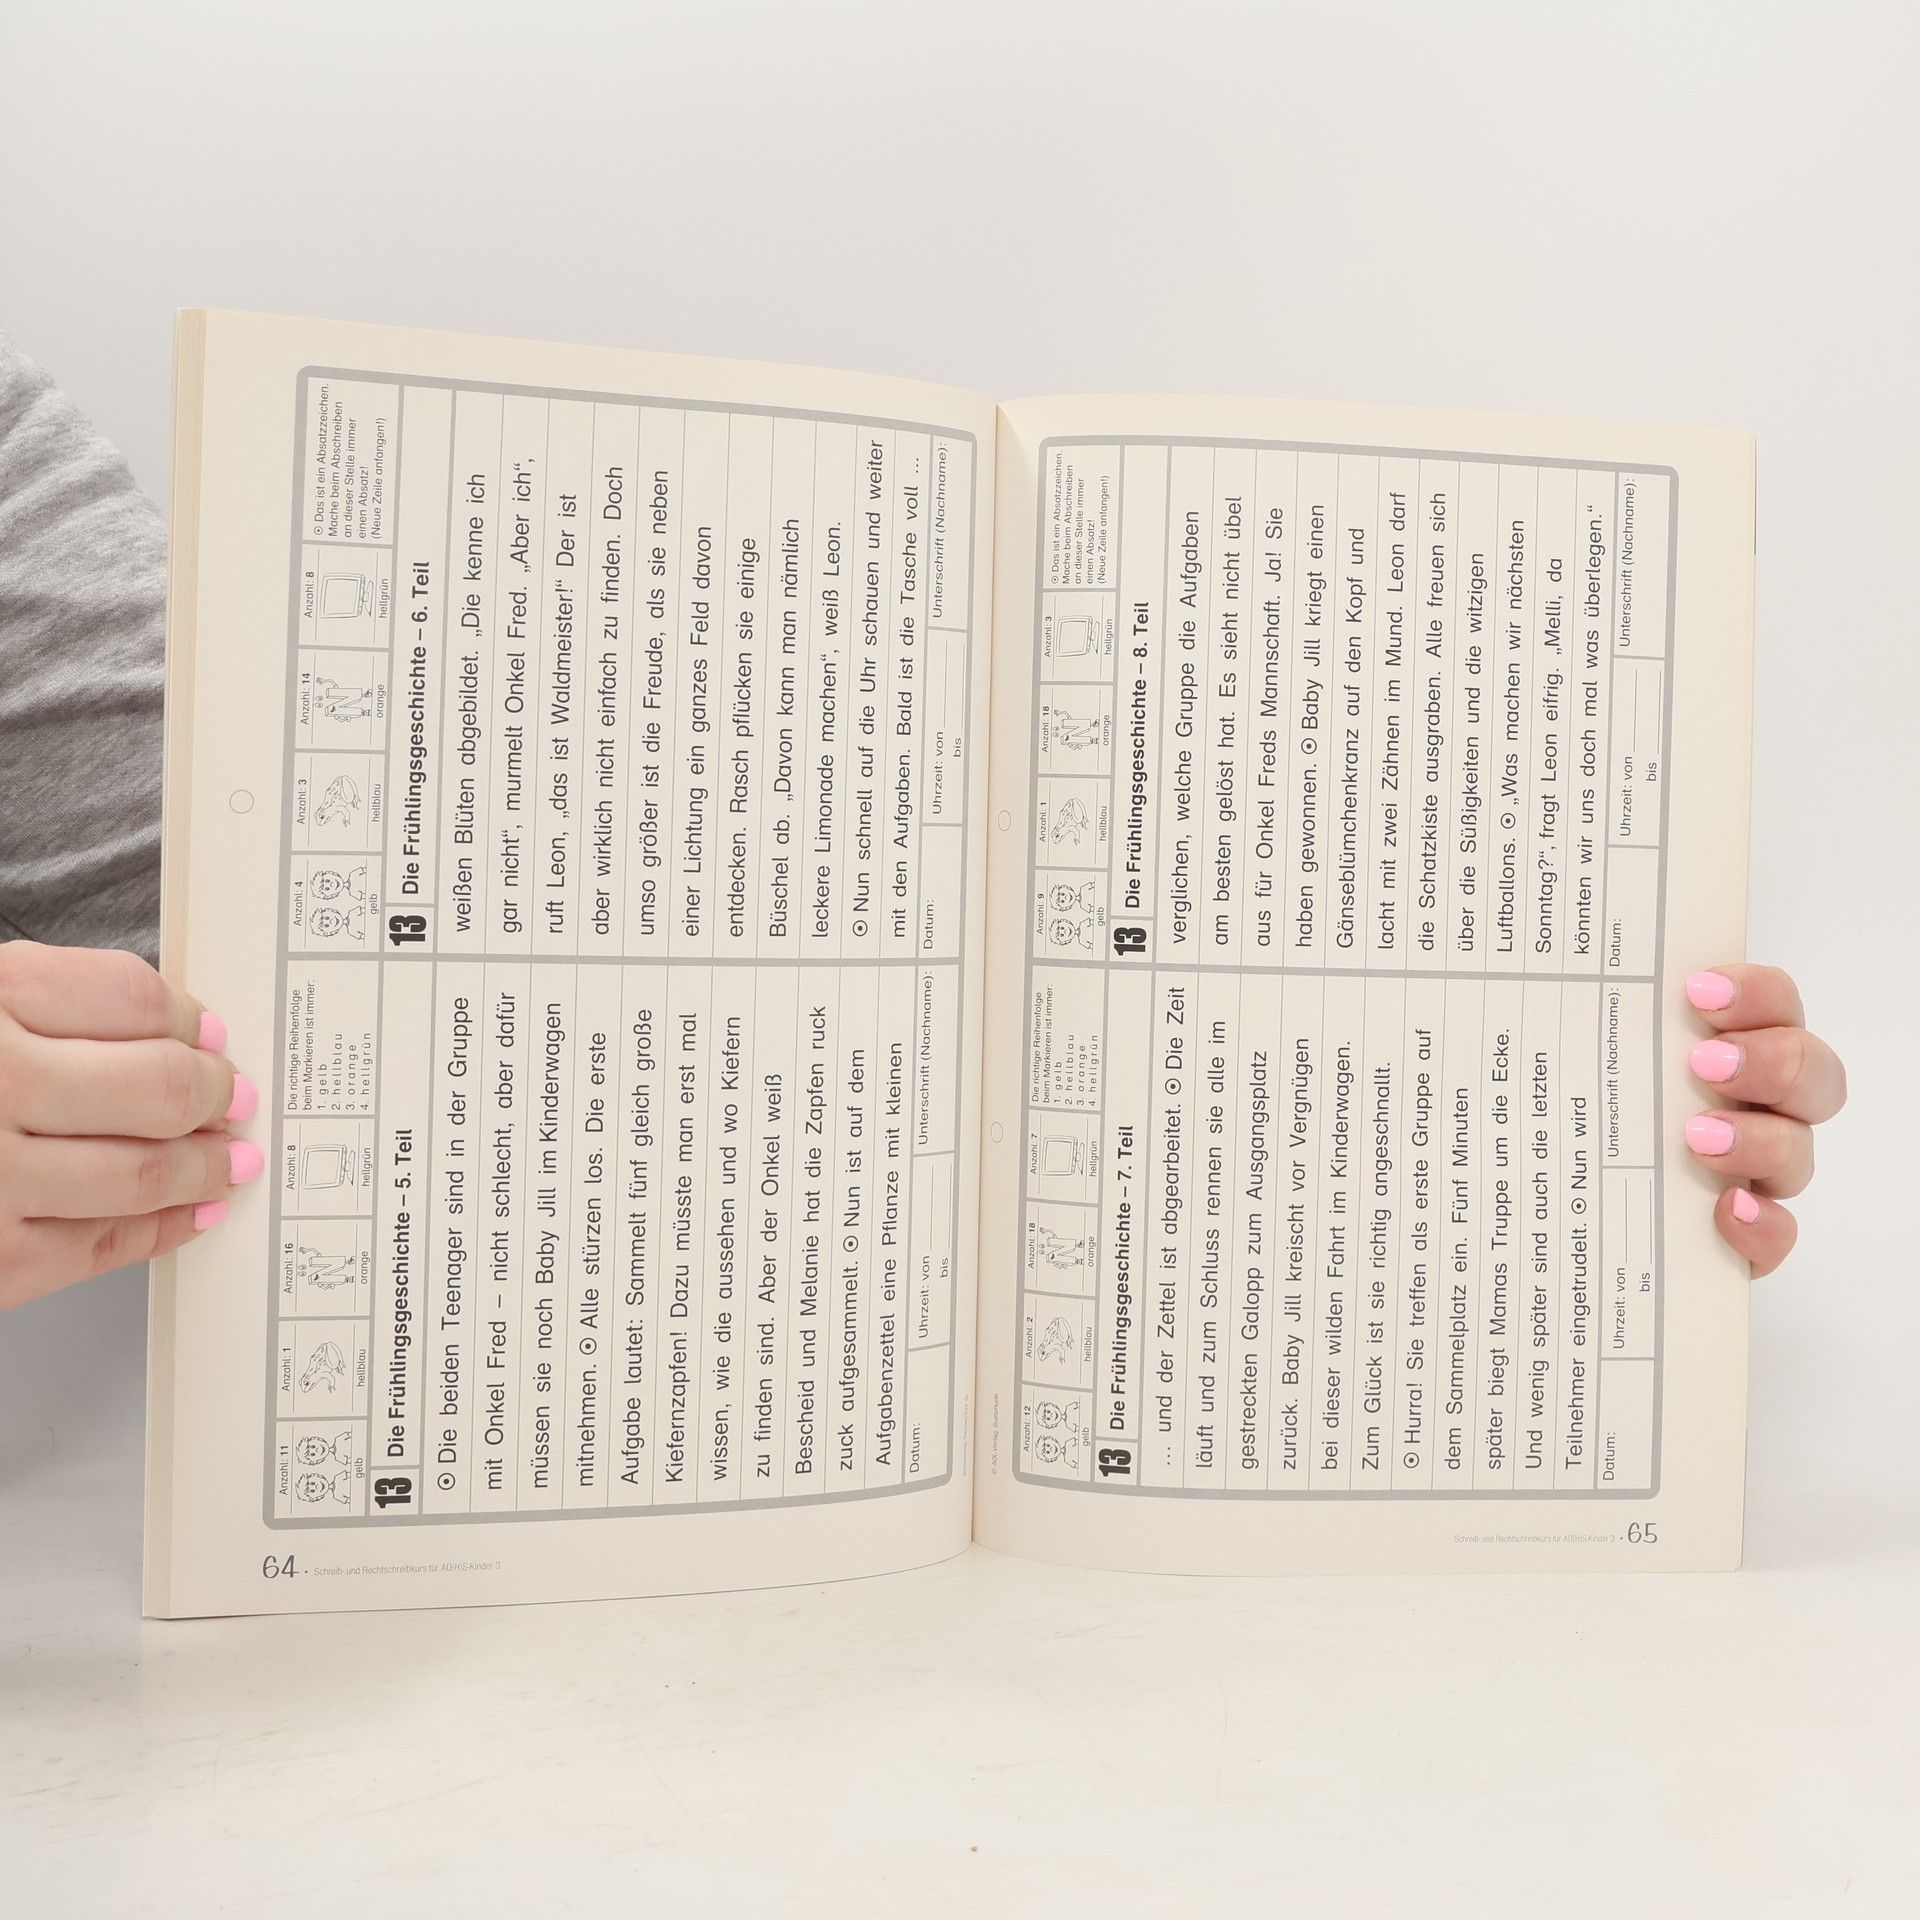 Anzahl: 11
gelb
Anzahl: 1
hellblau
Anzahl: 16
orange
Anzahl: 8
hellgrün
Die richtige Reihenfolge
beim Markieren ist immer:
1. gelb
2. hellblau
3. orange
4. hellgrün
13 Die Frühlingsgeschichte – 5. Teil
⊙ Die beiden Teenager sind in der Gruppe
mit Onkel Fred – nicht schlecht, aber dafür
müssen sie noch Baby Jill im Kinderwagen
mitnehmen. ⊙ Alle stürzen los. Die erste
Aufgabe lautet: Sammelt fünf gleich große
Kiefernzapfen! Dazu müsste man erst mal
wissen, wie die aussehen und wo Kiefern
zu finden sind. Aber der Onkel weiß
Bescheid und Melanie hat die Zapfen ruck
zuck aufgesammelt. ⊙ Nun ist auf dem
Aufgabenzettel eine Pflanze mit kleinen
Datum:
Uhrzeit: von
bis
Unterschrift (Nachname):
Anzahl: 4
gelb
Anzahl: 3
hellblau
Anzahl: 14
orange
Anzahl: 8
hellgrün
⊙ Das ist ein Absatzzeichen.
Mache beim Abschreiben
an dieser Stelle immer
einen Absatz!
(Neue Zeile anfangen!)
13 Die Frühlingsgeschichte – 6. Teil
weißen Blüten abgebildet. „Die kenne ich
gar nicht“, murmelt Onkel Fred. „Aber ich“,
ruft Leon, „das ist Waldmeister!“ Der ist
aber wirklich nicht einfach zu finden. Doch
umso größer ist die Freude, als sie neben
einer Lichtung ein ganzes Feld davon
entdecken. Rasch pflücken sie einige
Büschel ab. „Davon kann man nämlich
leckere Limonade machen“, weiß Leon.
⊙ Nun schnell auf die Uhr schauen und weiter
mit den Aufgaben. Bald ist die Tasche voll …
Datum:
Uhrzeit: von
bis
Unterschrift (Nachname):
64 • Schreib- und Rechtschreibkurs für AD(H)S-Kinder 3
Anzahl: 12
gelb
Anzahl: 2
hellblau
Anzahl: 18
orange
Anzahl: 7
hellgrün
Die richtige Reihenfolge
beim Markieren ist immer:
1. gelb
2. hellblau
3. orange
4. hellgrün
13 Die Frühlingsgeschichte – 7. Teil
… und der Zettel ist abgearbeitet. ⊙ Die Zeit
läuft und zum Schluss rennen sie alle im
gestreckten Galopp zum Ausgangsplatz
zurück. Baby Jill kreischt vor Vergnügen
bei dieser wilden Fahrt im Kinderwagen.
Zum Glück ist sie richtig angeschnallt.
⊙ Hurra! Sie treffen als erste Gruppe auf
dem Sammelplatz ein. Fünf Minuten
später biegt Mamas Truppe um die Ecke.
Und wenig später sind auch die letzten
Teilnehmer eingetrudelt. ⊙ Nun wird
Datum:
Uhrzeit: von
bis
Unterschrift (Nachname):
Anzahl: 9
gelb
Anzahl: 1
hellblau
Anzahl: 18
orange
Anzahl: 3
hellgrün
⊙ Das ist ein Absatzzeichen.
Mache beim Abschreiben
an dieser Stelle immer
einen Absatz!
(Neue Zeile anfangen!)
13 Die Frühlingsgeschichte – 8. Teil
verglichen, welche Gruppe die Aufgaben
am besten gelöst hat. Es sieht nicht übel
aus für Onkel Freds Mannschaft. Ja! Sie
haben gewonnen. ⊙ Baby Jill kriegt einen
Gänseblümchenkranz auf den Kopf und
lacht mit zwei Zähnen im Mund. Leon darf
die Schatzkiste ausgraben. Alle freuen sich
über die Süßigkeiten und die witzigen
Luftballons. ⊙ „Was machen wir nächsten
Sonntag?“, fragt Leon eifrig. „Melli, da
könnten wir uns doch mal was überlegen.“
Datum:
Uhrzeit: von
bis
Unterschrift (Nachname):
Schreib- und Rechtschreibkurs für AD(H)S-Kinder 3 • 65